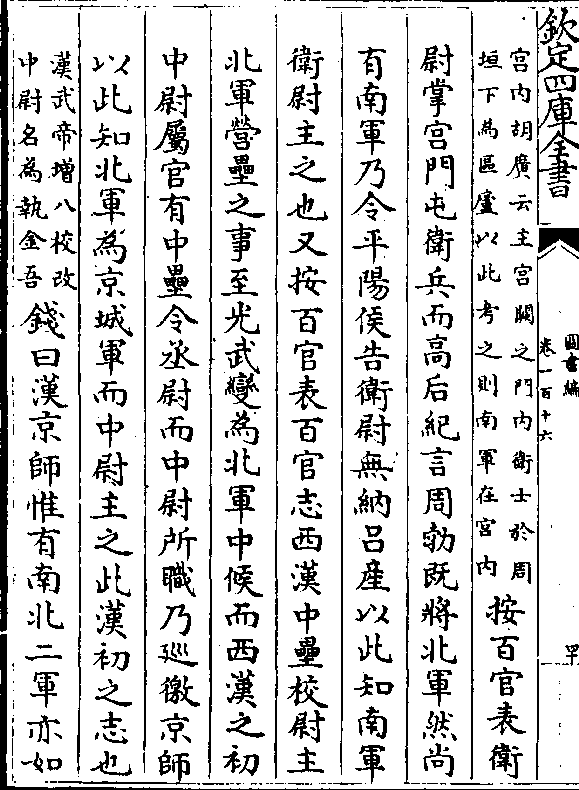 欽定四庫全書
圖書編
卷一百十六
宫内胡廣云主宫闕之門内衛士於周
垣下為區廬以此考之則南軍在宫内
按百官表衛
尉掌宫門屯衛兵而高后紀言周勃既將北軍然尚
有南軍乃令平陽侯告衛尉無納吕產以此知南軍
衛尉主之也又按百官表百官志西漢中壘校尉主
北軍營壘之事至光武變為北軍中候而西漢之初
中尉屬官有中壘令丞尉而中尉所職乃廵徼京師
以此知北軍為京城軍而中尉主之此漢初之志也
漢武帝增八校改
中尉名為執金吾
錢曰漢京師惟有南北二軍亦如